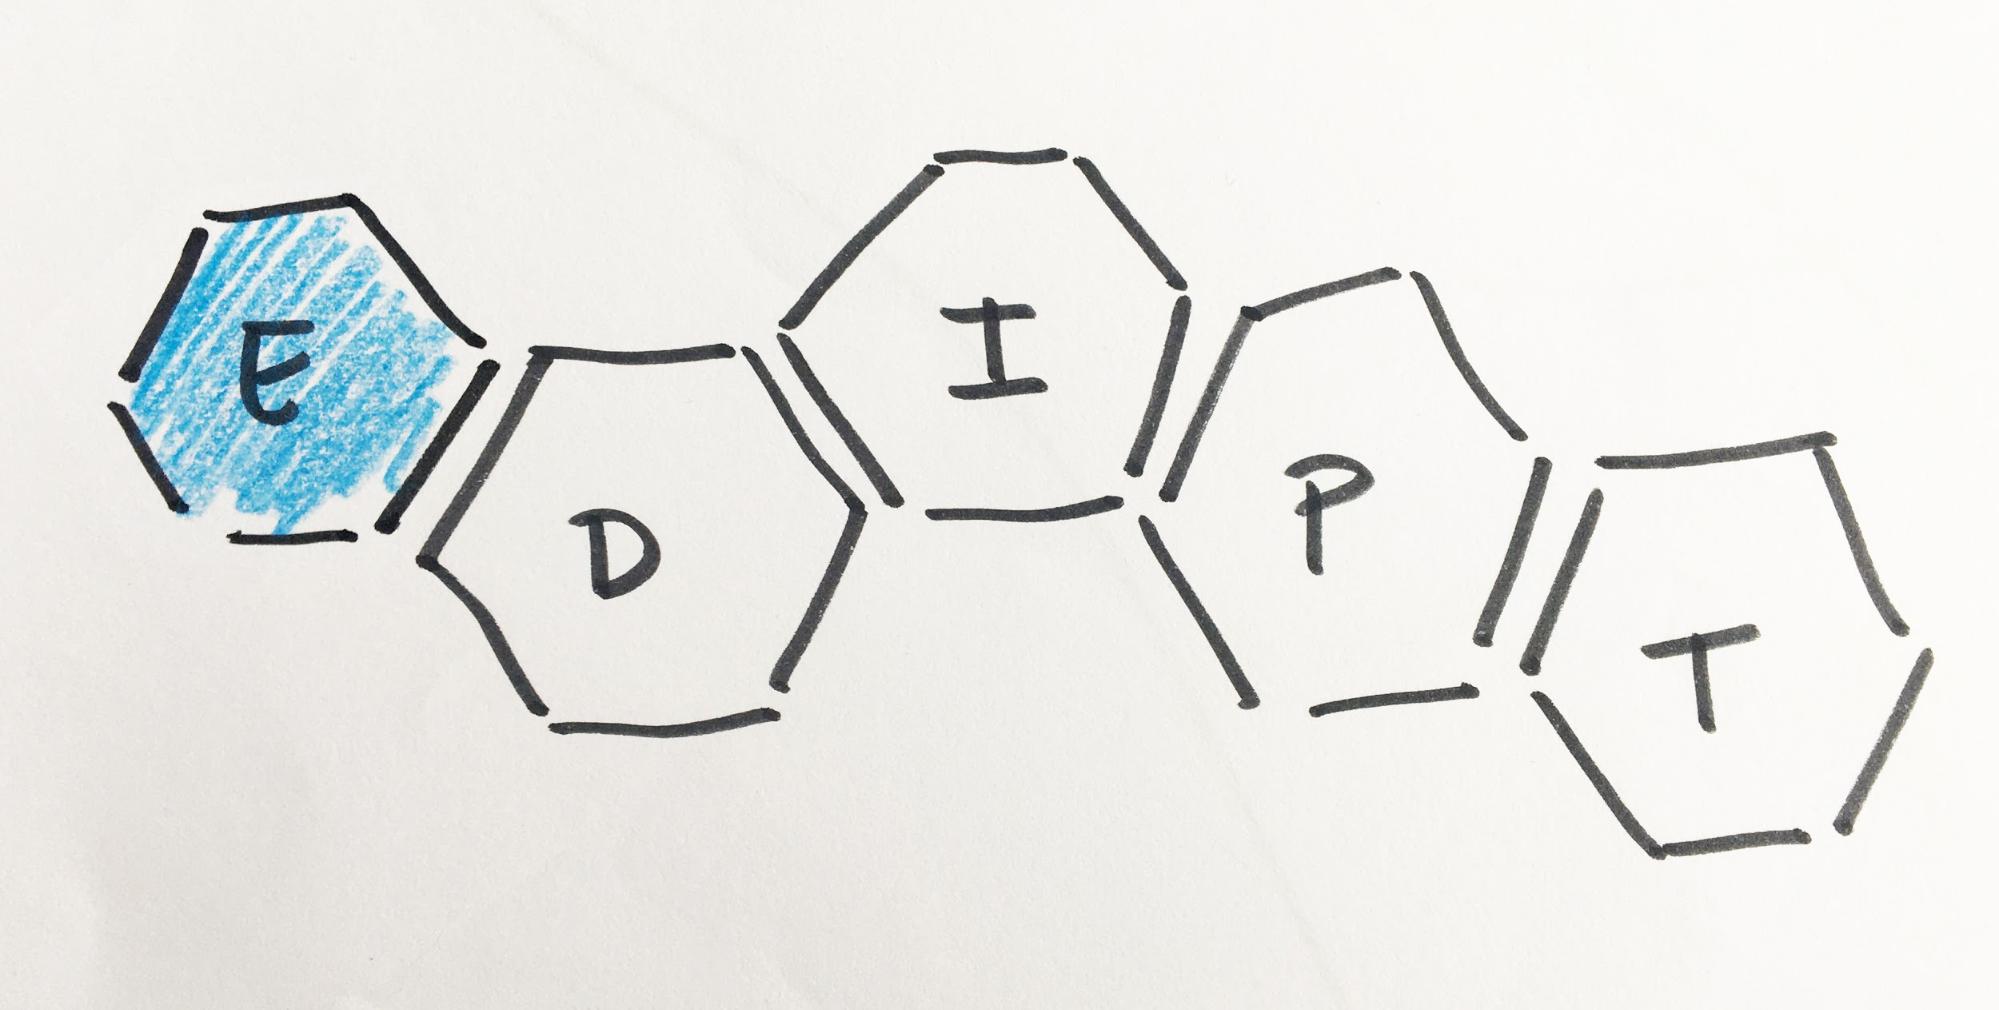 E D I P T